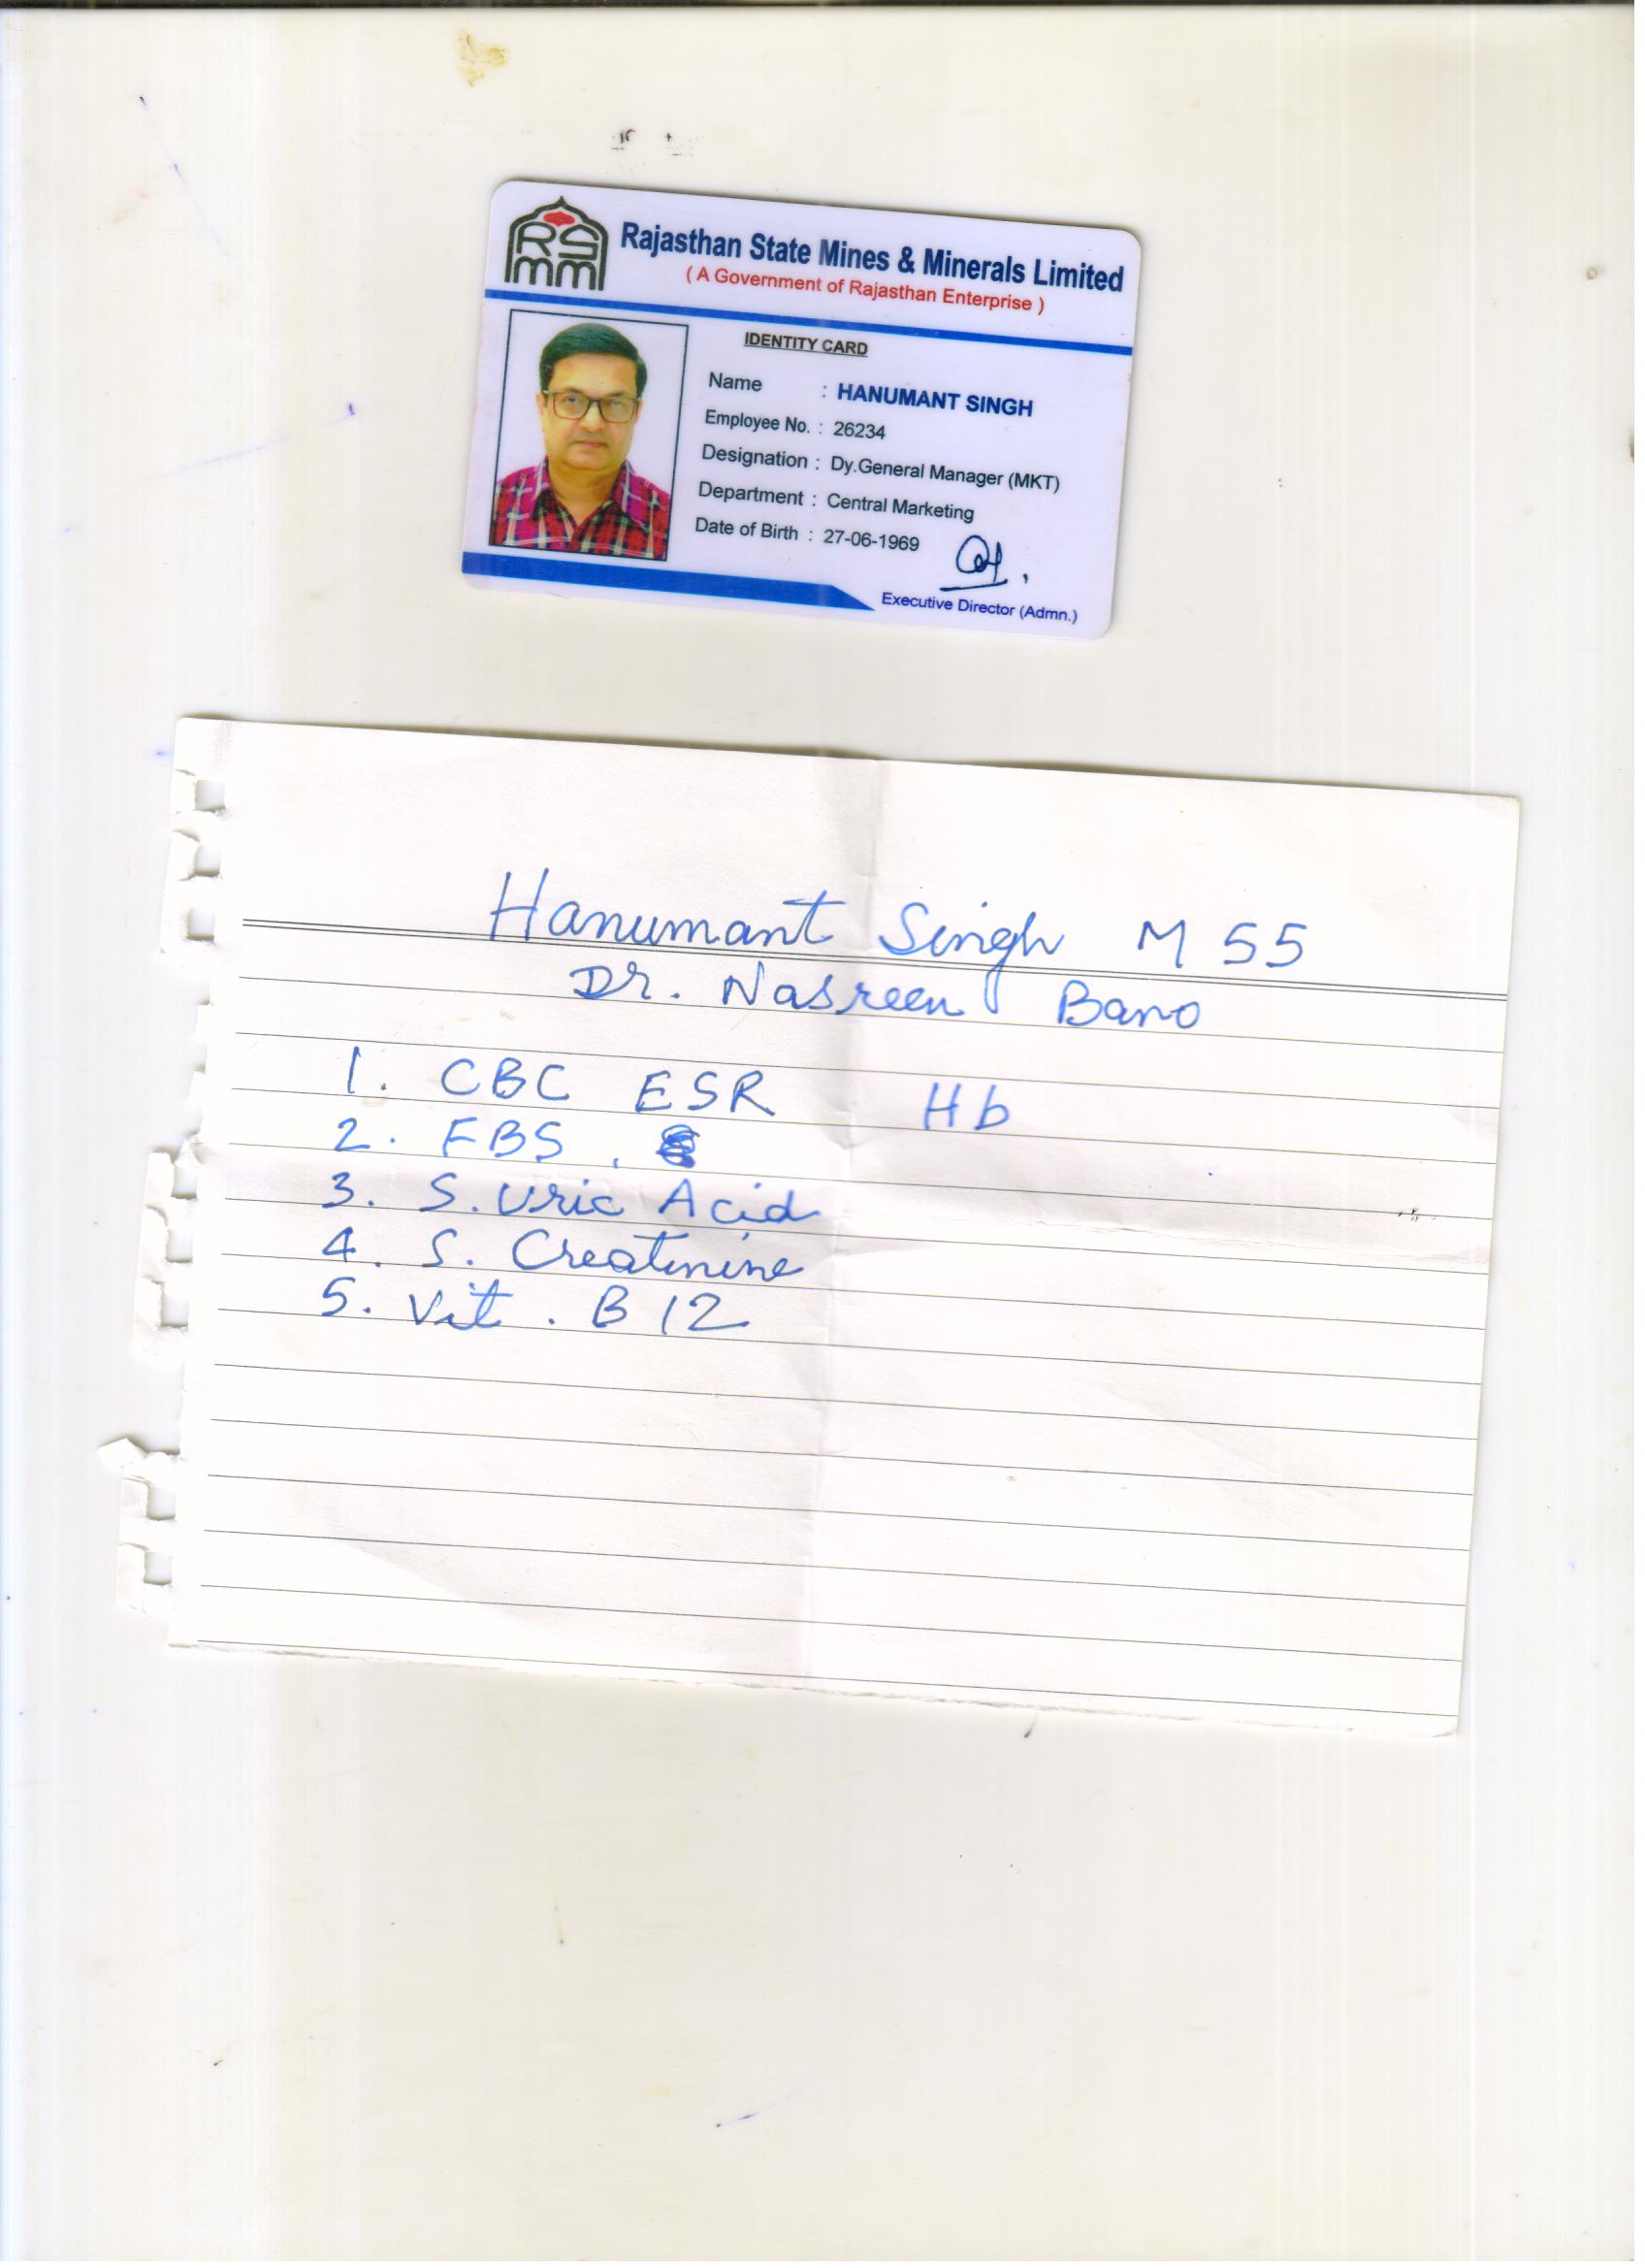 RS
mm
Rajasthan State Mines & Minerals Limited
( A Government of Rajasthan Enterprise )
IDENTITY CARD
Name : HANUMANT SINGH
Employee No. : 26234
Designation : Dy.General Manager (MKT)
Department : Central Marketing
Date of Birth : 27-06-1969
Executive Director (Admn.)
Hanumant Singh M 55
Dr. Nasreen Bano
1. CBC ESR Hb
2. FBS.
3. S. Uric Acid
4. S. Creatinine
5. Vit. B 12